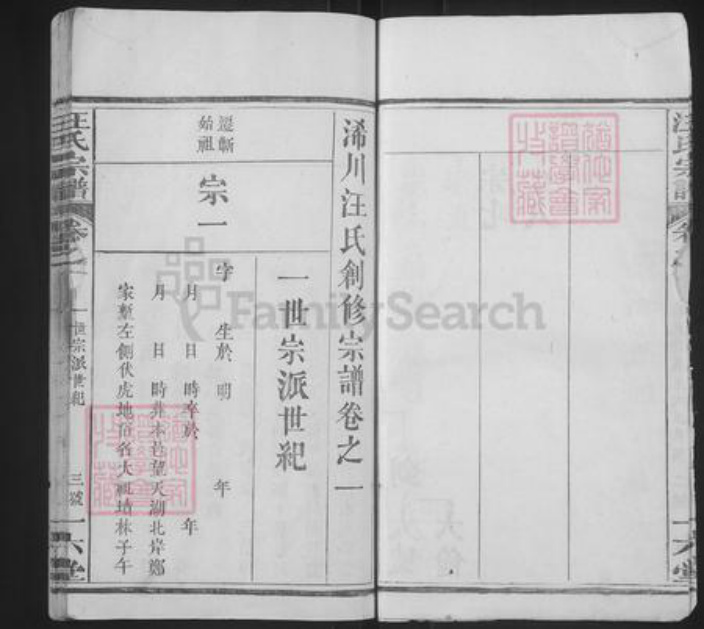 汪氏宗譜
浠川汪氏創修宗譜卷之一
一世宗派世紀
遷蘄
始祖
宗一
字 生於明 年
月 日 時卒於 年
月 日 時葬本邑望天湖北岸鄭
家塹左側伏虎地俗名大祖墳林子午
汪氏宗譜
卷之一
一世宗派世紀
三號
一六堂
一六堂
FamilySearch